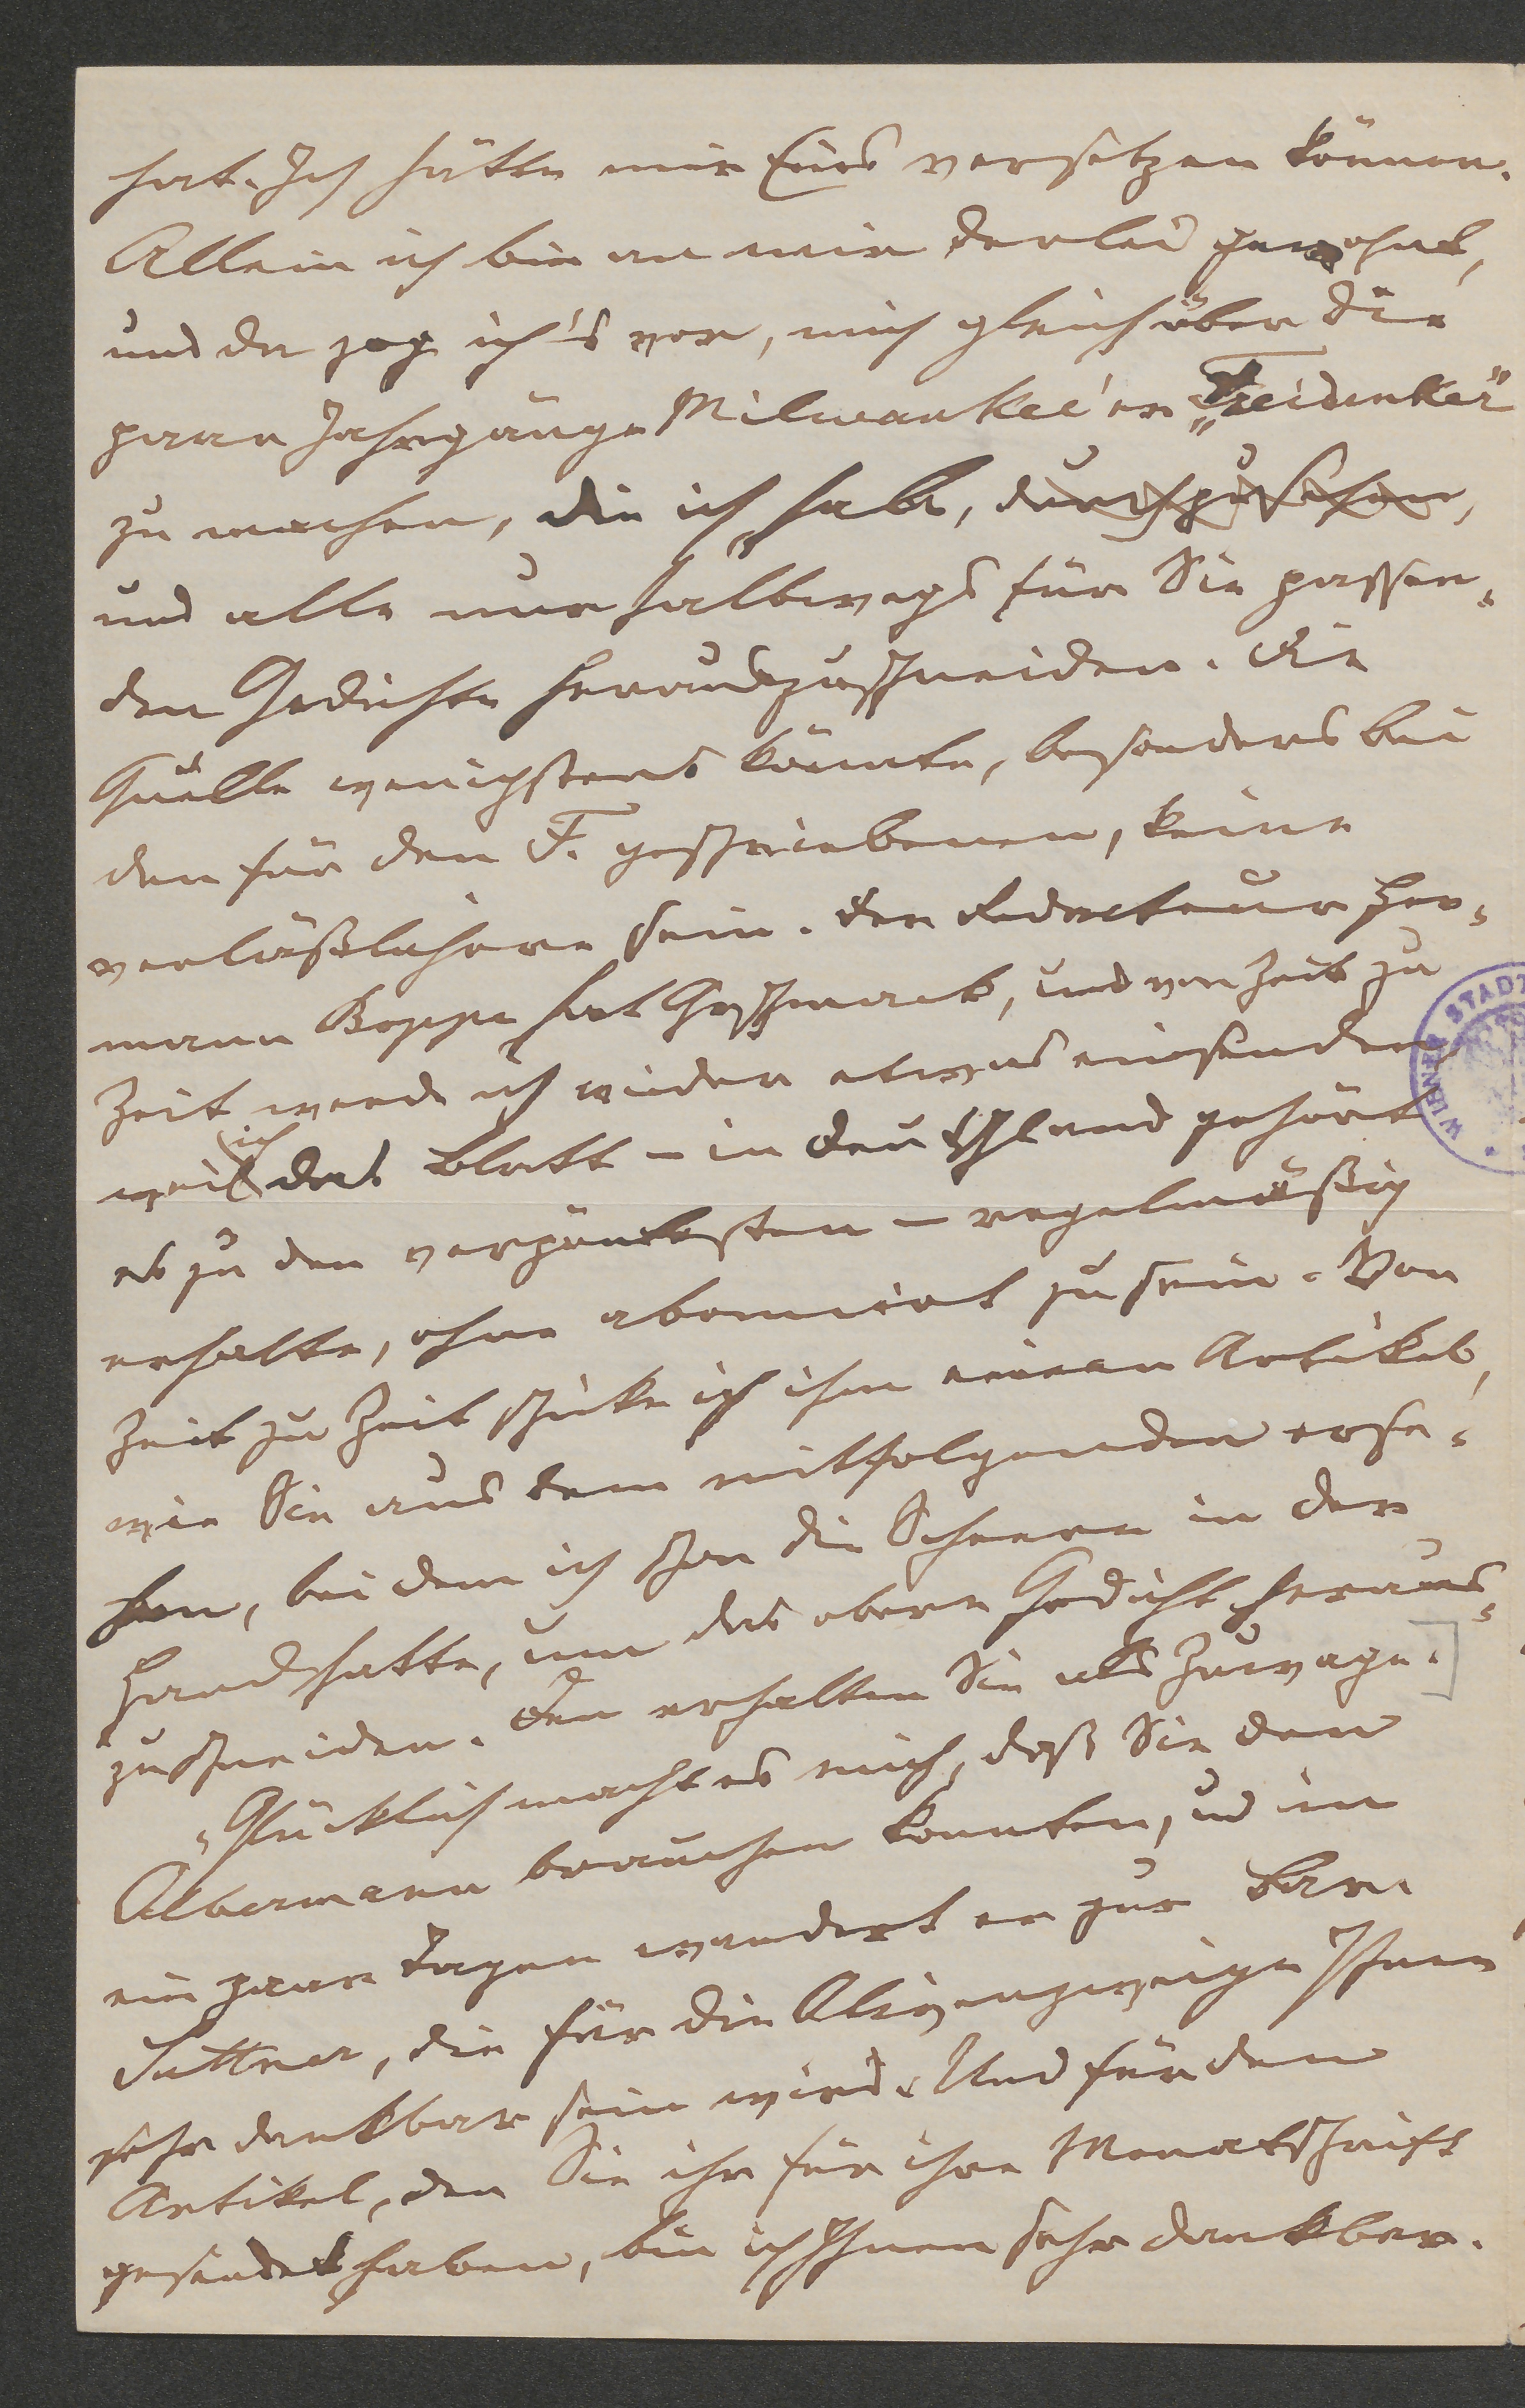 hat. Ich hätte mir Eins versetzen können.
Allein ich bin an mir derlei gewohnt,
und da zog ich's vor, mich gleich über die
paar Jahrgänge Milwaukee'er „Freidenker“
zu machen, die ich habe, durchzusehen,
und alle nur halbwegs für Sie passen-
den Gedichte herauszuschneiden. Die
Quelle wenigstens könnte, besonders bei
den für den F. geschriebenen, keine
verläßlichere sein. Der Redacteur Her-
mann Boppe hat Geschmack, und von Zeit zu
Zeit werde ich wieder etwas einsenden
weil ich das Blatt – in Deutschland gehört
es zu den verpöntesten – regelmäßig
erhalte, ohne abonnirt zu sein. Von
Zeit zu Zeit schicke ich ihm einen Artikel,
wie Sie aus dem mitfolgenden erse-
hen, bei dem ich schon die Scheere in der
Hand hatte, um das obere Gedicht heraus-
zuschneiden. Den erhalten Sie als Zuwage.
Glücklich macht es mich, daß Sie den
Albermann brauchen konnten, und in
ein paar Tagen wandert er zur Bar.
Suttner, die für die Olivenzweige Ihnen
sehr dankbar sein wird. Und für den
Artikel, den Sie ihr für ihre Monatschrift
gesendet haben, bin ich Ihnen sehr dankbar.
WIENER STADT